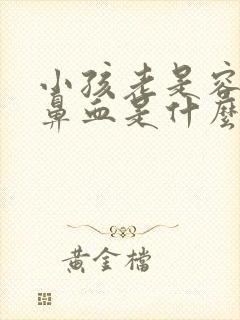 小孩老是容
鼻血是什麼
黃金檔